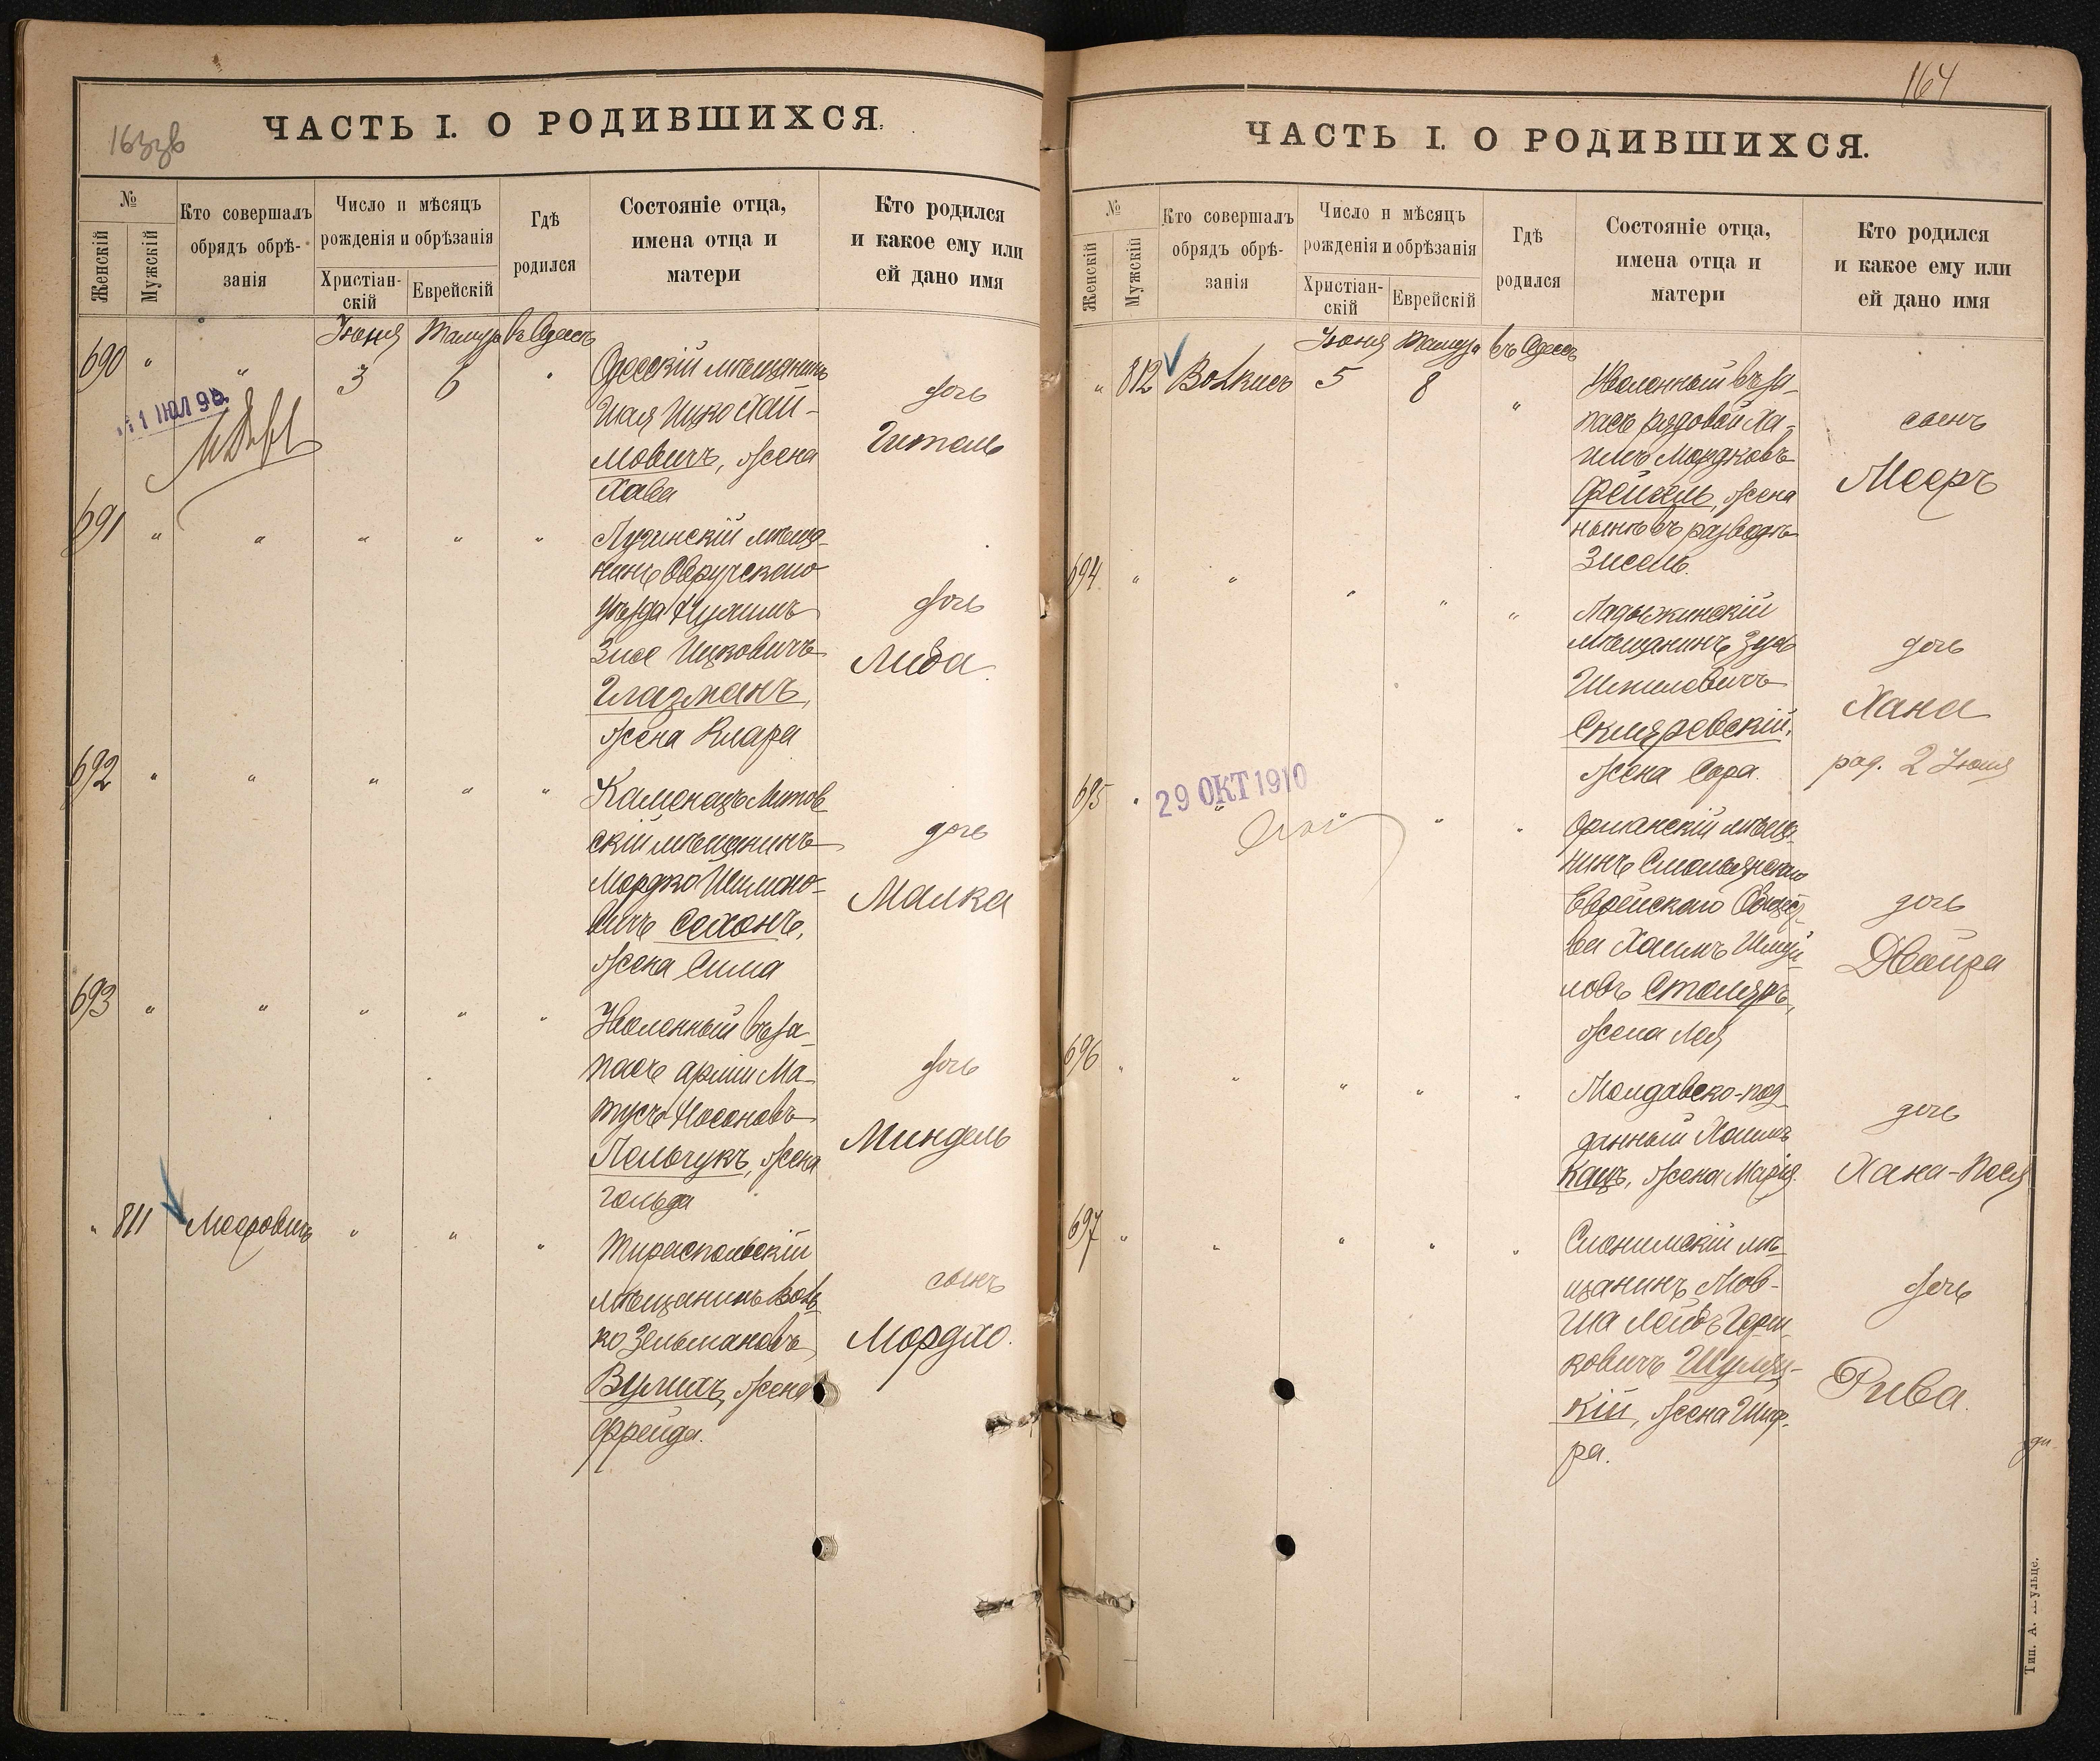 163зв
ЧАСТЬ I. О РОДИВШИХСЯ.
№
Женскій
Мужскій
Кто совершалъ
обрядъ обрѣ-
занія
Число и мѣсяцъ
рожденія и обрѣзанія
Христіан-
скій
Еврейскій
Гдѣ
родился
Состояніе отца,
имена отца и
матери
Кто родился
и какое ему или
ей дано имя
Іюня Тамуза въ Одессѣ
690 " " 3 6 "
Одесскій мѣщанинъ
Ицко Хай-
мовичъ, жена
Хава
дочь
Гитель
691 " " " " "
Лугинскій мѣща-
нинъ Овручскаго
уѣзда Нухимъ
Зисе Ицковичъ
Глазманъ,
жена Клара
дочь
Либа.
692 " " " " "
Каменецъ Литов
скій мѣщанинъ
Мордко Шлиомо-
вичъ Сохонъ,
жена Сима
дочь
Малка
693 " " " " "
Уволенный въ за-
пасъ арміи Ма-
тусъ Носоновъ
Пельчукъ, жена
Гольда
дочь
Миндель
" 811 Мееровичъ " " "
Тираспольскій
мѣщанинъ Воль-
ко Зельмановъ
Вулихъ, жена
Фрейда.
сынъ
Мордко.
164
ЧАСТЬ I. О РОДИВШИХСЯ.
№
Женскій
Мужскій
Кто совершалъ
обрядъ обрѣ-
занія
Число и мѣсяцъ
рожденія и обрѣзанія
Христіан-
скій
Еврейскій
Гдѣ
родился
Состояніе отца,
имена отца и
матери
Кто родился
и какое ему или
ей дано имя
Іюня Тамуза въ Одессѣ
" 812 Волкисъ 5 8 "
Уволенный въ за-
пасъ рядовой Ха-
имъ Мордковъ
Фейгель, жена
нынѣ въ разводѣ
Зисель.
сынъ
Мееръ
694 " " " " "
Ладыжинскій
мѣщанинъ Зусь
Шмиловичъ
Скляревскій,
жена Сора.
дочь
Хана
род. 2 Іюня
695 " " " " "
29 ОКТ 1910
Оршанскій мѣща-
нинъ Смольянскаго
Еврейскаго Общест-
ва Хаимъ Шмуй-
ловъ Столяръ,
жена Лея
дочь
Двойра
696 " " " " "
Молдавско-под-
данный Хаимъ
Кацъ, жена Марія.
дочь
Хана-Песя
697 " " " " "
Слонимскій мѣ-
щанинъ Мов-
ша Лейбъ Герш-
ковичъ Шуляц-
кій, жена Шиф-
ра.
дочь
Рива.
Тип. А. Шульце.